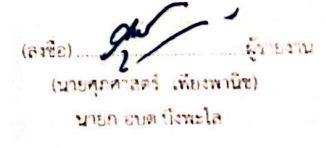 (ลงชื่อ)..............................ผู้รายงาน
(นายศุภศาสตร์ เพียงพานิช)
นายก อบต บึงพะไล